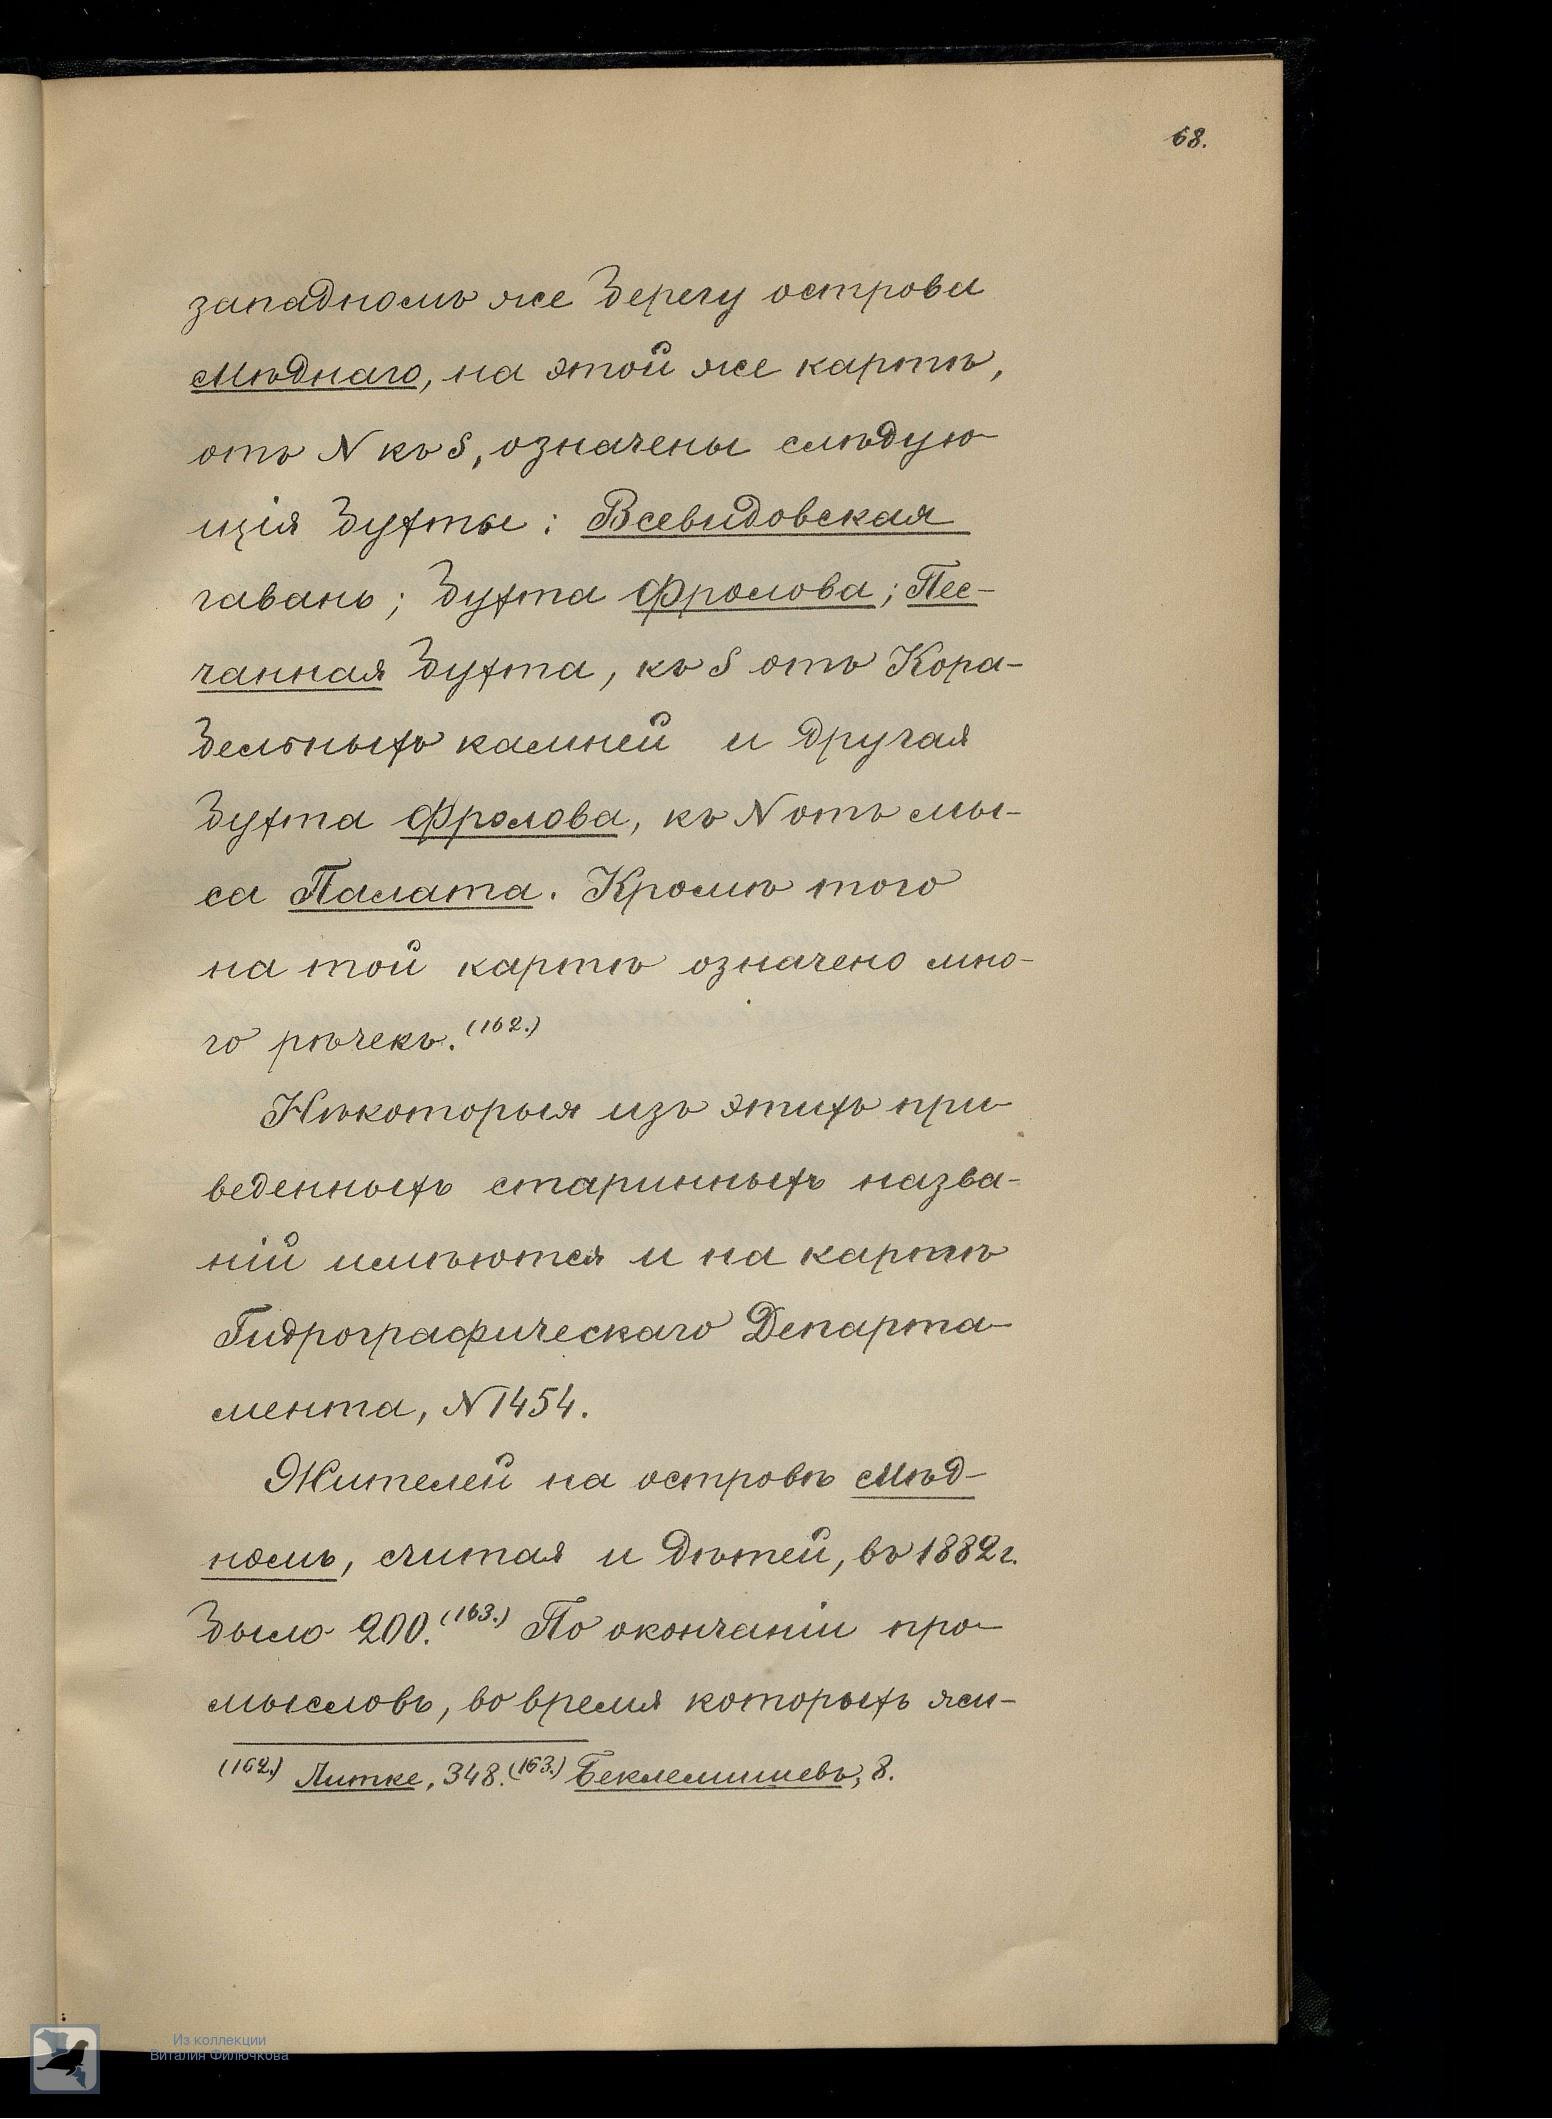 68.
западномъ же берегу острова
Мѣднаго, на этой же картѣ,
отъ N къ S, означены слѣдую-
щія бухты: Всевидовская
гавань; бухта Фролова; Пес-
чанная бухта, къ S отъ Кора-
бельныхъ камней и другая
бухта Фролова, къ N отъ мы-
са Палата. Кромѣ того
на той картѣ означено мно-
го рѣчекъ.(162.)
Нѣкоторыя изъ этихъ при-
веденныхъ старинныхъ назва-
ній имѣются и на картѣ
Гидрографическаго Департа-
мента, N 1454.
Жителей на островѣ Мѣд-
номъ, считая и дѣтей, въ 1882 г.
было 200.(163.) По окончаніи про-
мысловъ, во время которыхъ жи-
(162.) Литке, 348. (163.) Беклемишевъ, 8.
Из коллекции
Виталия Филючкова